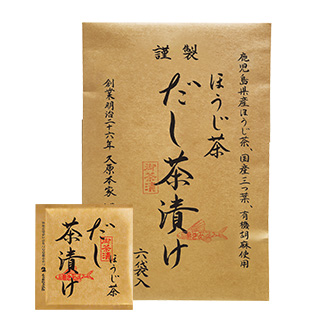 鹿児島県産ほうじ茶、国産三つ葉、有機胡麻使用
謹製
ほうじ茶
だし茶漬け
御茶漬
六袋入
創業明治二十六年 久原本家
ほうじ茶
だし
茶漬け
御茶漬